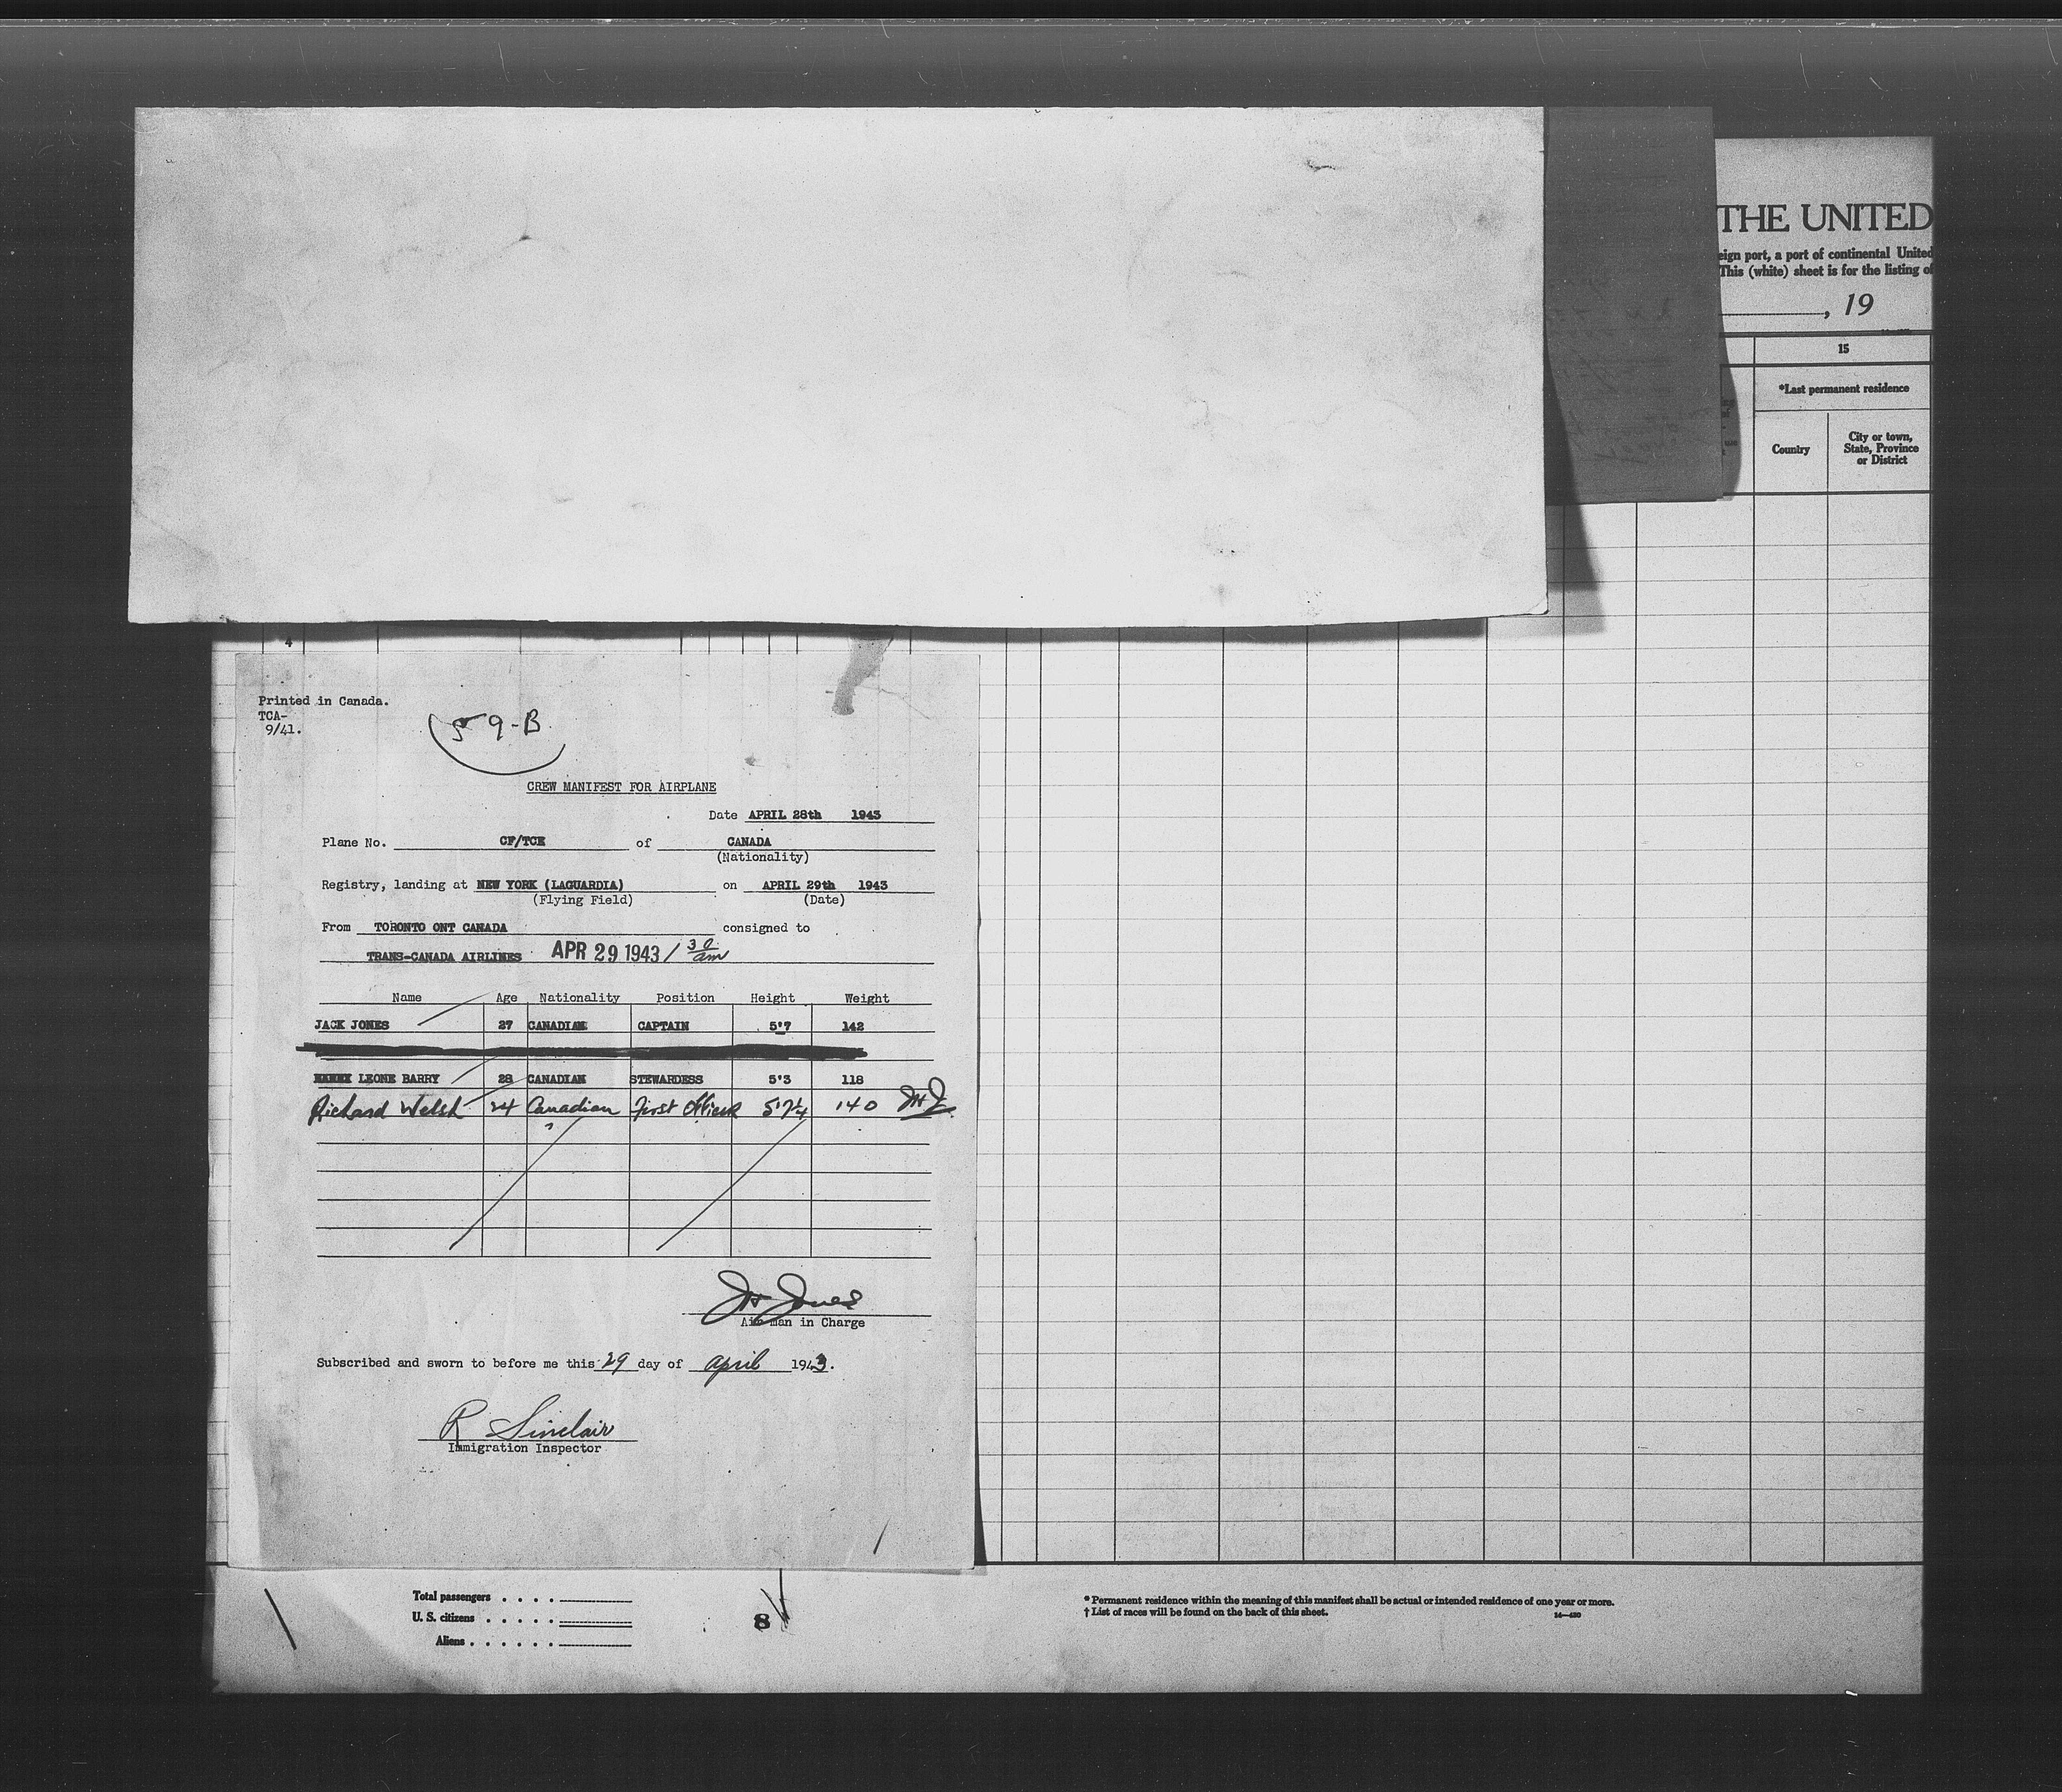 THE UNITED
eign port, a part of continental United
This (white) sheet is for the listing of
, 19
15
*Last permanent residence
Country
City or town,
State, Province
or District
4
Printed in Canada.
TCA-
9/41.
59-B
CREW MANIFEST FOR AIRPLANE
Date APRIL 28th 1943
Plane No. CF/TCK of CANADA
(Nationality)
Registry, landing at NEW YORK (LAGUARDIA) on APRIL 29th 1943
(Flying Field) (Date)
From TORONTO ONT CANADA consigned to
TRANS-CANADA AIRLINES APR 29 1943 / 30 am
Name Age Nationality Position Height Weight
JACK JONES 27 CANADIAN CAPTAIN 5'7 142
LEONE BARRY 28 CANADIAN STEWARDESS 5'3 118
Richard Welsh 24 Canadian First Officer 5'7¼ 140 JHJ.
JH Jones
Air man in Charge
Subscribed and sworn to before me this 29 day of april 1943.
R Sinclair
Immigration Inspector
Total passengers . . . .
U. S. citizens . . . . .
Aliens . . . . . .
8
* Permanent residence within the meaning of this manifest shall be actual or intended residence of one year or more.
† List of races will be found on the back of this sheet. 14—430